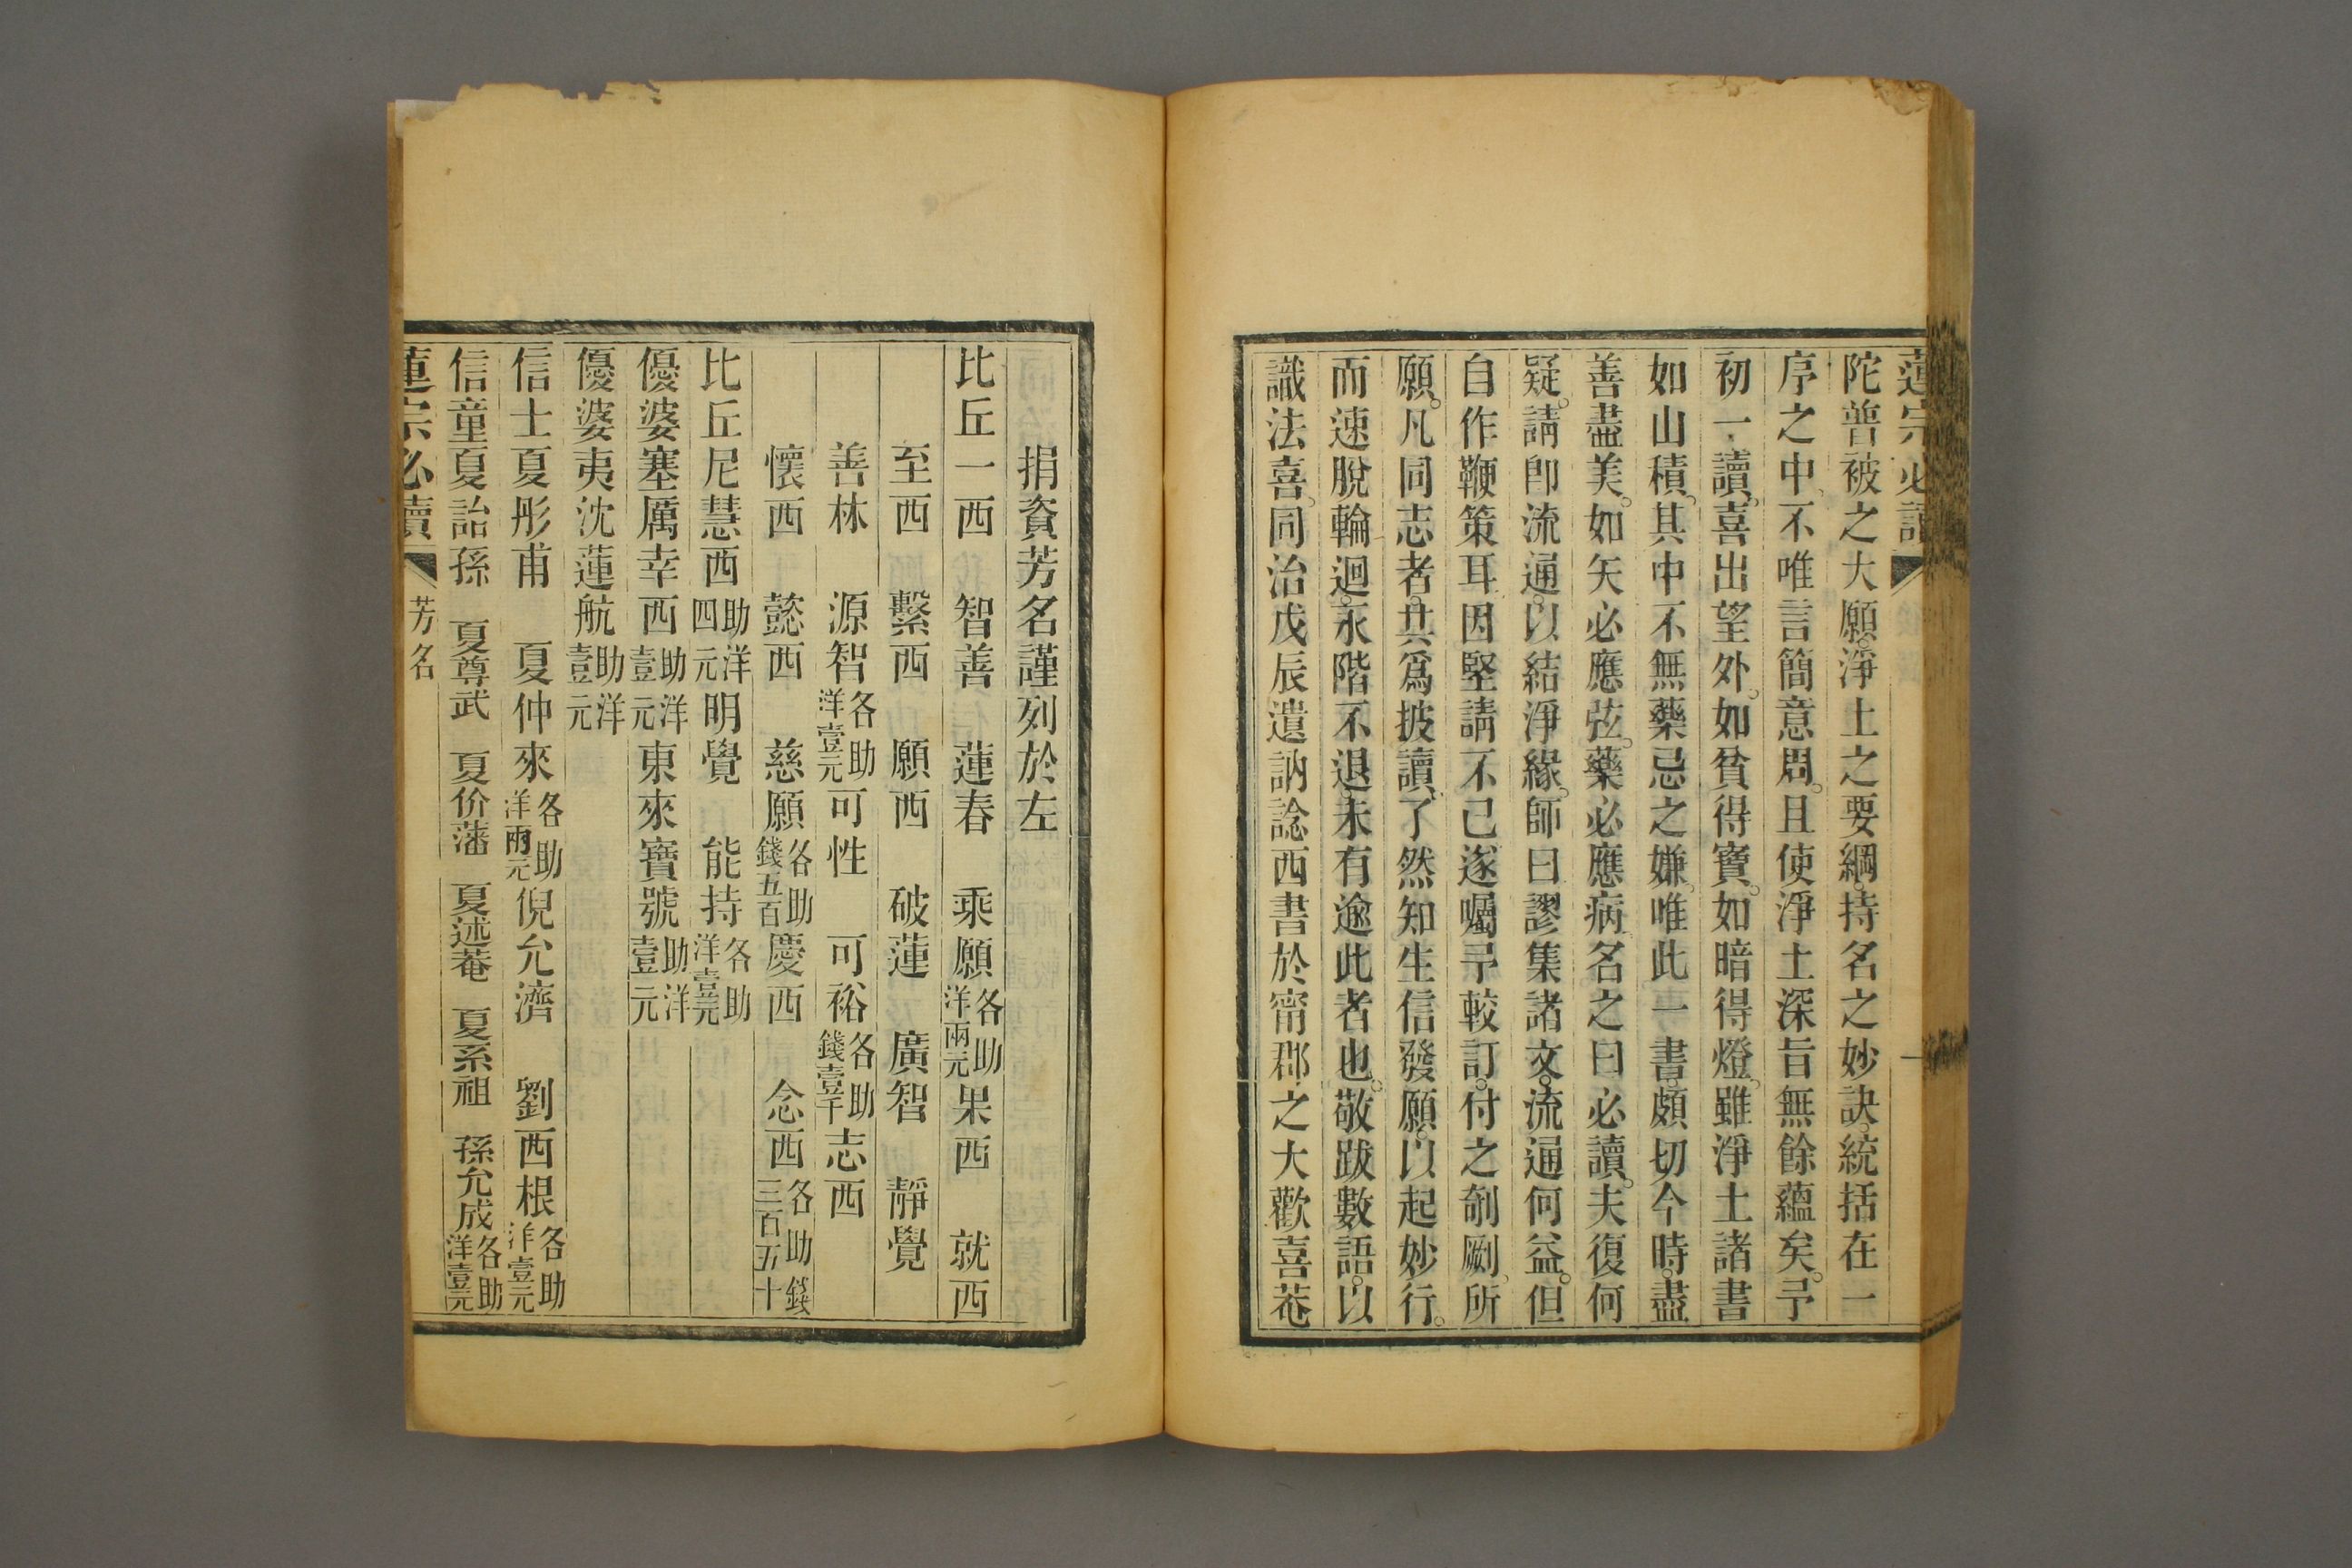 蓮宗必讀
陀普被之大願。淨土之要綱。持名之妙訣。統括在一
序之中、不唯言簡意周。且使淨土深旨無餘蘊矣。予
初一讀、喜出望外。如貧得寶。如暗得燈。雖淨土諸書
如山積。其中不無藥忌之嫌。唯此一書。頗切今時。盡
善盡美。如矢必應弦。藥必應病。名之曰必讀。夫復何
疑。請卽流通。以結淨緣。師曰謬集諸文。流通何益。但
自作鞭策耳因堅請不已遂囑予較訂。付之剞劂、所
願。凡同志者。共爲披讀、了然知生信發願。以起妙行。
而速脫輪迴。永階不退。未有逾此者也。敬跋數語。以
識法喜。同治戊辰遣訥諗西書於甯郡之大歡喜菴
捐資芳名謹列於左
比丘一西 智善 蓮春 乘願各助洋兩元果西 就西
至西 繫西 願西 破蓮 廣智 靜覺
善林 源智各助洋壹元可性 可裕各助錢壹千志西
懷西 懿西 慈願各助錢五百慶西 念西各助錢三百五十
比丘尼慧西助洋四元明覺 能持各助洋壹元
優婆塞厲幸西助洋壹元東來寶號助洋壹元
優婆夷沈蓮航助洋壹元
信士夏彤甫 夏仲來各助洋兩元倪允濟 劉西根各助洋壹元
信童夏詒孫 夏尊武 夏价藩 夏述菴 夏系祖 孫允成各助洋壹元
蓮宗必讀 芳名